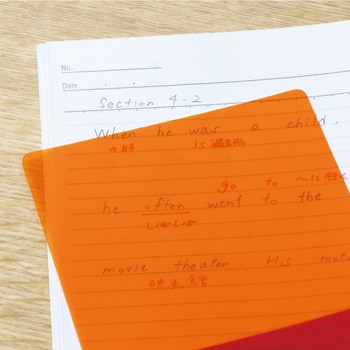 No.
Date
Section 4-2
When he was a child.
の時 is 過去形
go to ～に行く
he often went to the
しばしば
movie theater. His mot
映画